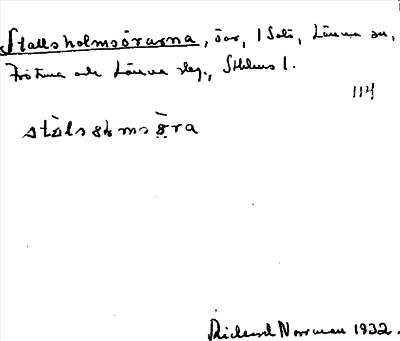 Stallsholmsörarna, öar, i Solö, Länna sn,
Frötuna och Länna slg., Sthlms l.
114
stàlsɷmsø̀ra
Rickard Norrman 1932.